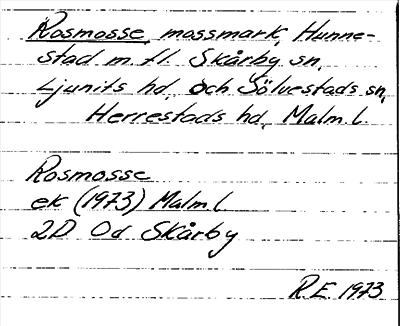 Rosmosse, mossmark, Hunne-
stad m.fl. Skårby sn,
Ljunits hd, och Sölvestads sn,
Herrestads hd, Malm.l.
Rosmosse
ek (1973) Malm.l
2D Od Skårby
R.E. 1973